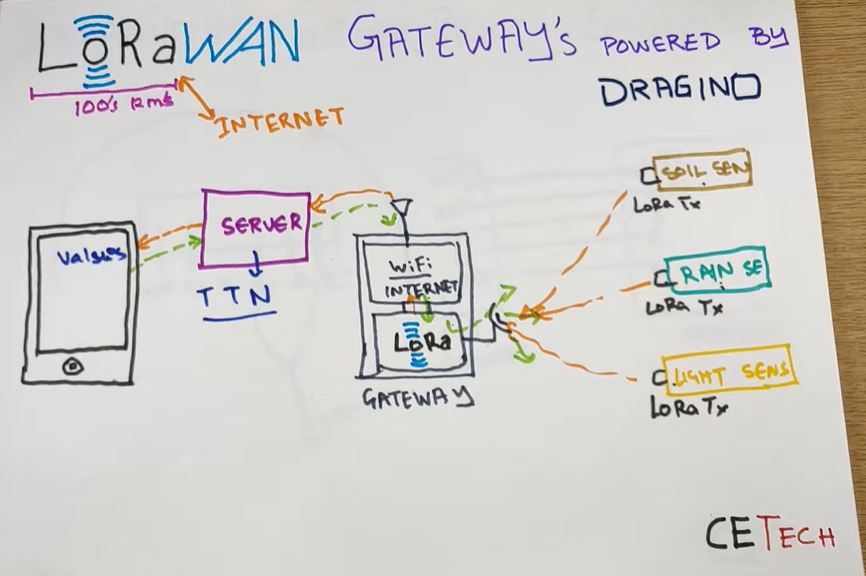 LoRaWAN GATEWAY's POWERED BY
DRAGINO
100's kms
INTERNET
SERVER
TTN
Values
WiFi
INTERNET
LoRa
GATEWAY
SOIL SEN
LoRa Tx
RAIN SE
LoRa Tx
LIGHT SENS
LoRa Tx
CETECH